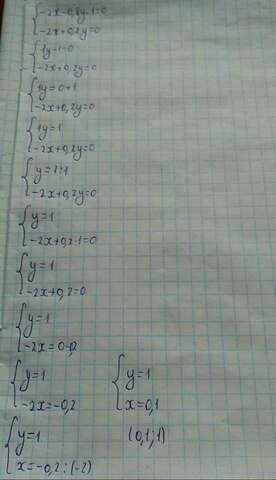 {-2x-0,8y-1=0
-2x+0,2y=0
{1y-1=0
-2x+0,2y=0
{1y=0+1
-2x+0,2y=0
{1y=1
-2x+0,2y=0
{y=1:1
-2x+0,2y=0
{y=1
-2x+0,2·1=0
{y=1
-2x+0,2=0
{y=1
-2x=0-0,2
{y=1
-2x=-0,2
{y=1
x=0,1
{y=1
x=-0,2:(-2)
(0,1;1)